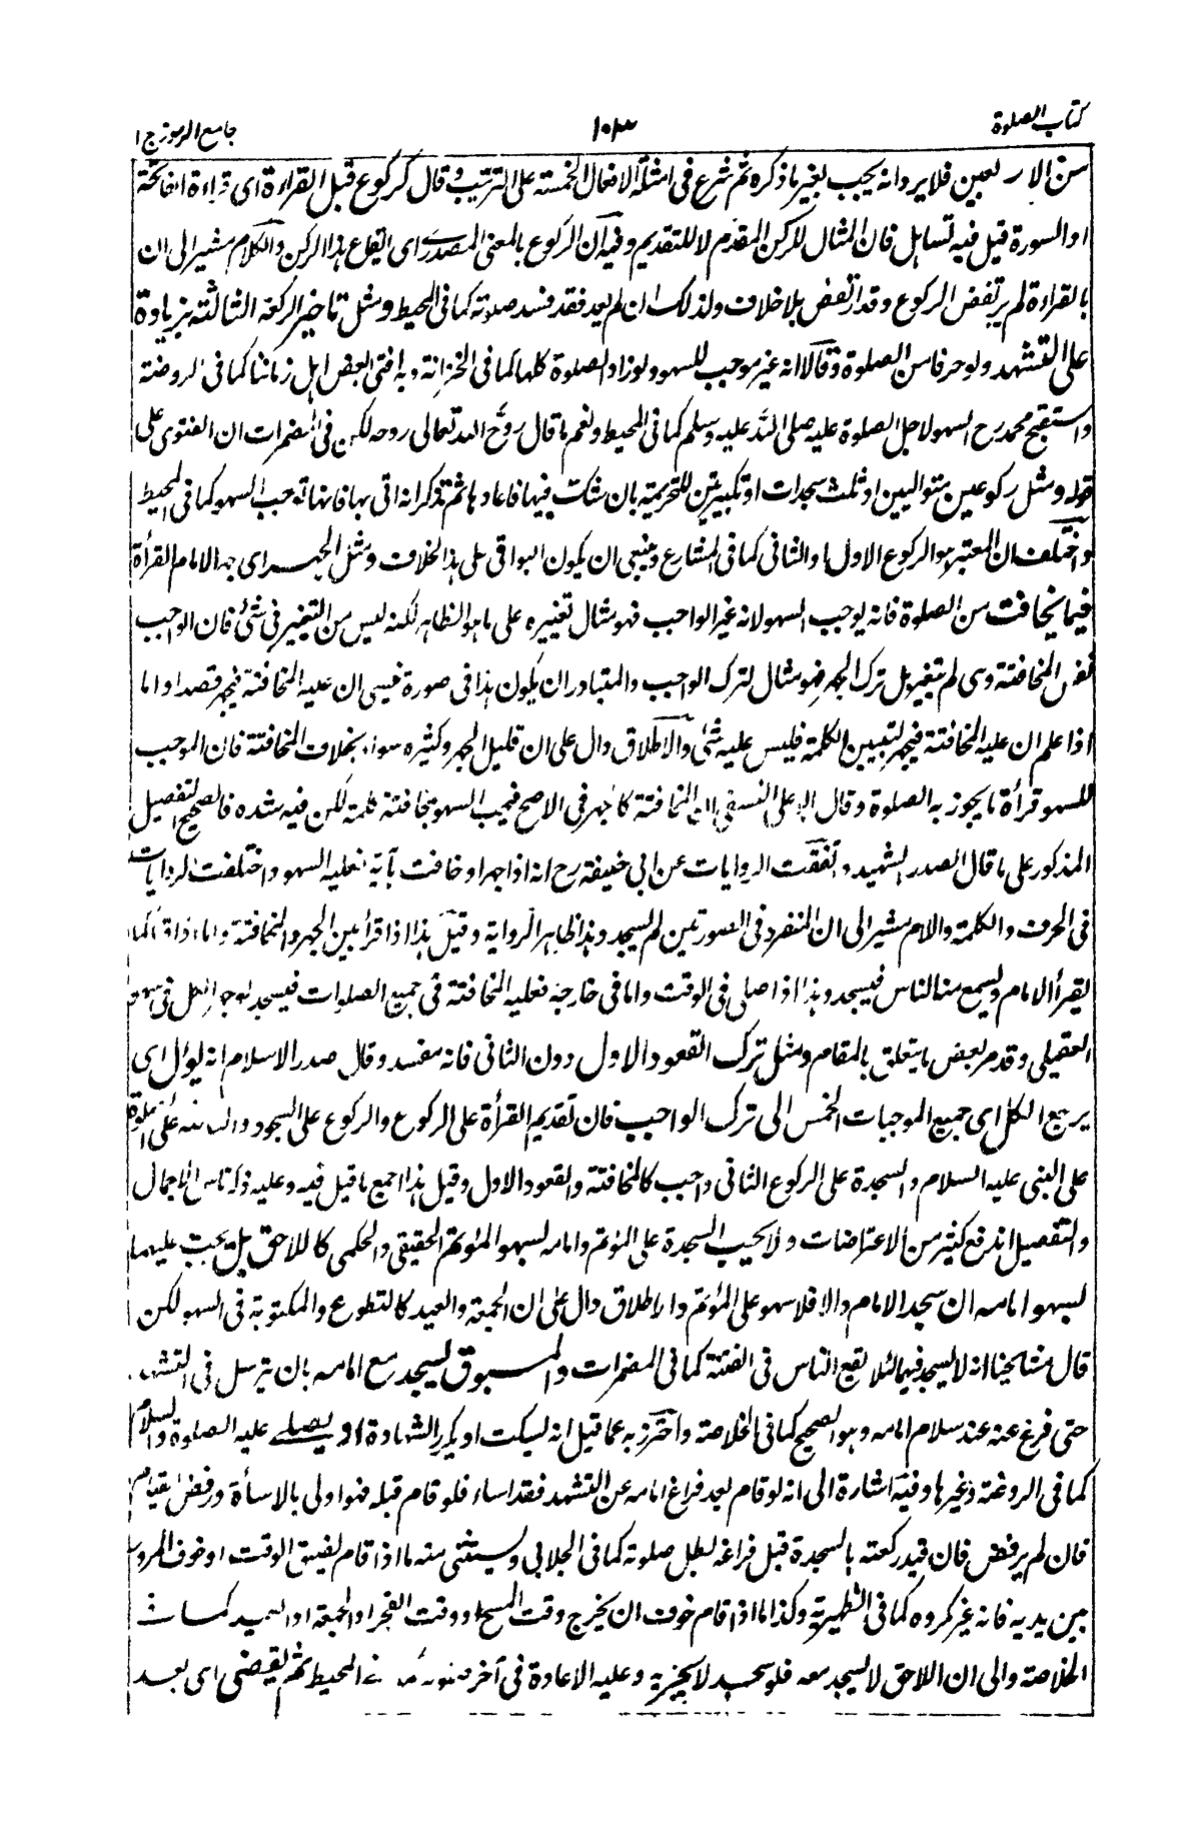 كتاب الصلوة
١٠٣
جامع الرموز ج ١
من الاربعين فلا يرد انه يجب بغير ما ذكره ثم شرع في امثلة الافعال الخمسة على الترتيب وقال كركوع قبل القراءة اى قراءة الفاتحة
او السورة قيل فيه تساهل فان المثال للركن المقدم لا للتقديم وفيه ان الركوع بالمعنى المصدرى اى ايقاع هذا الركن والكلام مشير الى ان
بالقراءة لم يرتفض الركوع وقد ارتفض بلا خلاف ولذلك ان لم يعد فقد فسد صلوته كما فى المحيط ومثل تاخير الركعة الثالثة بزيادة
على التشهد ولو حرفا من الصلوة وقالا انه غير موجب للسهو ولو زاد الصلوة كلها كما فى الخزانة وبه افتى بعض اهل زماننا كما فى الروضة
واستقبح محمد رح السهو لاجل الصلوة عليه صلى الله عليه وسلم كما فى المحيط ونعم ما قال روح الله تعالى روحه لكن فى المضمرات ان الفتوى على
قوله ومثل ركوعين متواليين او ثلث سجدات او تكبيرتين للتحريمة بان شك فيها فاعادها ثم تذكر انه اتى بها فانها توجب السهو كما فى المحيط
واختلف ان المعتبر هو الركوع الاول او الثانى كما فى المشارع وينبغى ان يكون البواقى على هذا الخلاف ومثل الجهر اى جهر الامام القرأة
فيما يخافت من الصلوة فانه يوجب السهو لانه غير الواجب فهو مثال تغييره على ما هو الظاهر لكنه ليس من التغيير فى شئ فان الواجب
نفس المخافتة وهى لم تغير بل ترك الجهر فهو مثال لترك الواجب والمتبادر ان يكون هذا فى صورة نسى ان عليه المخافتة فيجهر قصدا واما
اذا علم ان عليه المخافتة فيجهر لتبيين الكلمة فليس عليه شئ والاطلاق دال على ان قليل الجهر وكثيره سواء بخلاف المخافتة فان الموجب
للسهو قرأة ما يجوز به الصلوة وقال ابو على النسفى ان المخافتة كالجهر فى الاصح فيجب السهو بمخافتة كلمة لكن فيه شدة فالصحيح التفصيل
المذكور على ما قال الصدر الشهيد واتفقت الروايات عن ابى حنيفة رح انه اذا جهر او خافت بآية فعليه السهو واختلفت الروايات
فى الحرف والكلمة والام مشير الى ان المنفرد فى الصورتين لم يسجد وهذا ظاهر الرواية وقيل هذا اذا قرأ بين الجهر والمخافتة واما اذا قرأ كما
يقرأ الامام ويسمع منا الناس فيسجد وهذا اذا صلى فى الوقت واما فى خارجه فعليه المخافتة فى جميع الصلوات فيسجد لو جهر الكل فى سهو
العقيلى وقد مر بعض ما يتعلق بالمقام ومثل ترك القعود الاول دون الثانى فانه مفسد وقال صدر الاسلام انه يؤل اى
يرجع الكل اى جميع الموجبات الخمس الى ترك الواجب فان تقديم القرأة على الركوع والركوع على السجود والثالثة على الصلوة
على النبى عليه السلام والسجدة على الركوع الثانى واجب كالمخافتة والقعود الاول وقيل هذا اجمع ما قيل فيه وعليه ذكرنا من الاجمال
والتفصيل اندفع كثير من الاعتراضات ولا يجب السجدة على المؤتم وامامه لسهو المؤتم الحقيقى والحكمى كاللاحق بل يجب عليهما
لسهو امامه ان سجد الامام والا فلا سهو على المؤتم والاطلاق دال على ان الجمعة والعيد كالتطوع والمكتوبة فى السهو لكن
قال مشايخنا انه لا يسجد فيهما لئلا يقع الناس فى الفتنة كما فى المضمرات والمسبوق يسجد مع امامه بان يترسل فى التشهد
حتى فرغ عنه عند سلام امامه وهو الصحيح كما فى الخلاصة واحترز به عما قيل انه يسكت او يكرر الشهادة او يصلى عليه الصلوة والسلام
كما فى الروضة وغيرها وفيه اشارة الى انه لو قام بعد فراغ امامه عن التشهد فقد اساء فلو قام قبله فهو اولى بالاساءة ورفض لقيام
فان لم يرفض فان قيد ركعته بالسجدة قبل فراغه بطل صلوته كما فى الجلابى ويستثنى منه ما اذا قام لضيق الوقت او خوف المرور
بين يديه فانه غير مكروه كما فى الظهيرية وكذا ما اذا قام خوف ان يخرج وقت المسح او وقت الفجر او الجمعة او العيد كما فى
الخلاصة والى ان اللاحق لا يسجد معه فلو سجد لا يجزيه وعليه الاعادة فى آخر صلوته كما فى المحيط ثم يقضى اى بعد